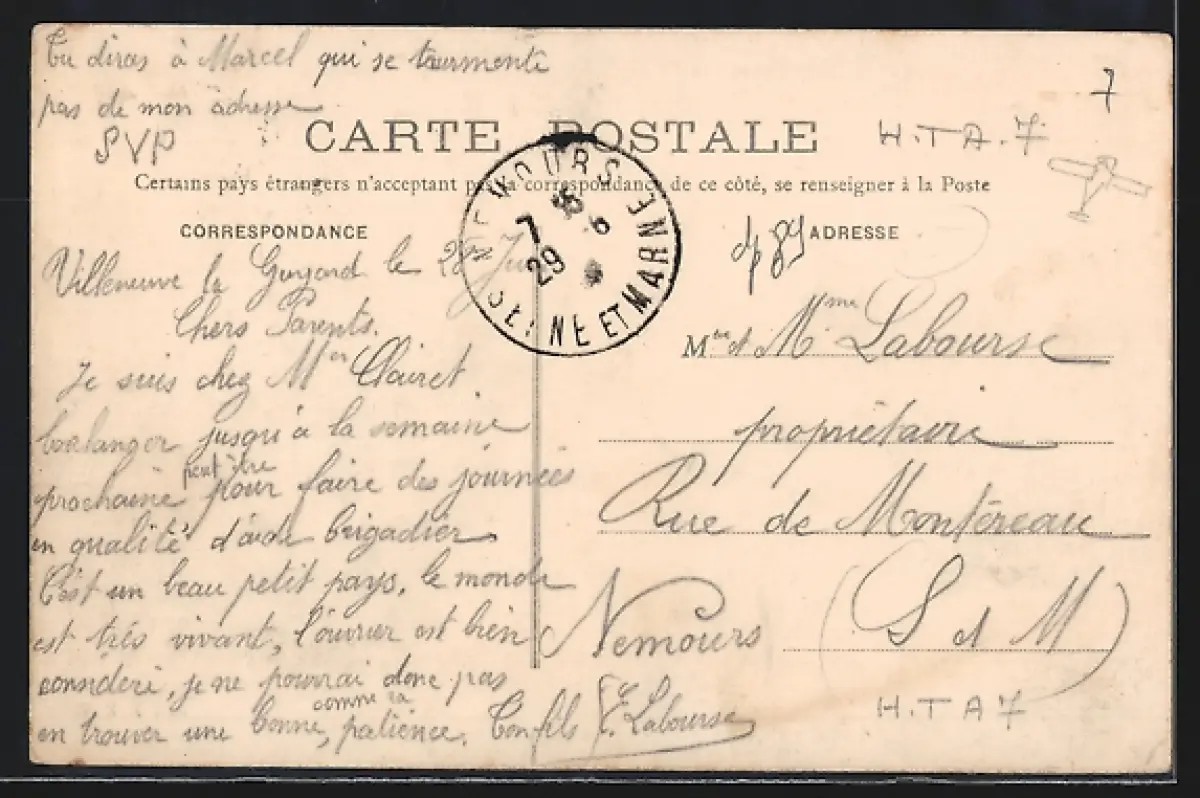 Tu diras à Marcel qui se tourmente
pas de mon adresse
SVP
7
H.T.A.7
CARTE POSTALE
Certains pays étrangers n'acceptant pas la correspondance de ce côté, se renseigner à la Poste
CORRESPONDANCE
ADRESSE
NEMOURS
7 35
29 6
SEINE ET MARNE
Villeneuve le Guyard le 28
Chers Parents.
Je suis chez Mer Clairet
boulanger jusqu'à la semaine
prochaine peut être pour faire des journées
en qualité d'aide brigadier
C'est un beau petit pays, le monde
est très vivant, l'ouvrier est bien
considéré, je ne pourrai donc pas
en trouver une bonne, comme ça patience. Ton fils E. Labourse
Mr et Mme Labourse
propriétaire
Rue de Montereau
Nemours
(S et M)
H.T A 7